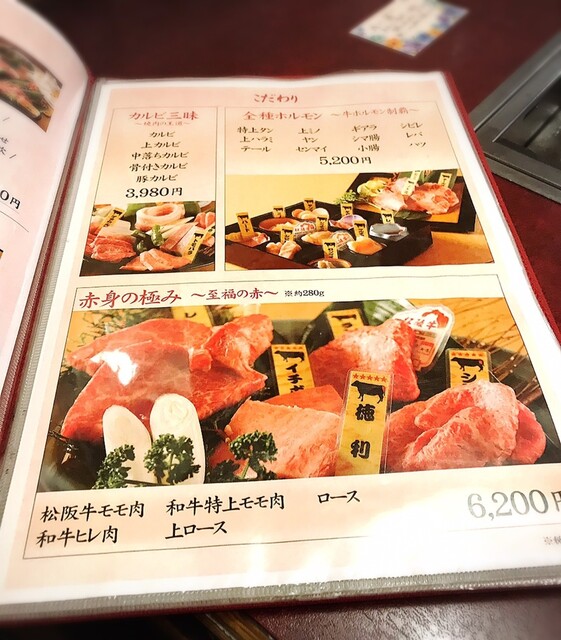 こだわり
カルビ三昧
～焼肉の王道～
カルビ
上カルビ
中落ちカルビ
骨付きカルビ
豚カルビ
3,980円
全種ホルモン ～牛ホルモン制覇～
特上タン 上ミノ ギアラ シビレ
上ハラミ ヤン シマ腸 レバ
テール センマイ 小腸 ハツ
5,200円
赤身の極み ～至福の赤～ ※約280g
イチボ
徳利
シ
松阪牛モモ肉 和牛特上モモ肉 ロース
和牛ヒレ肉 上ロース
6,200円
0円